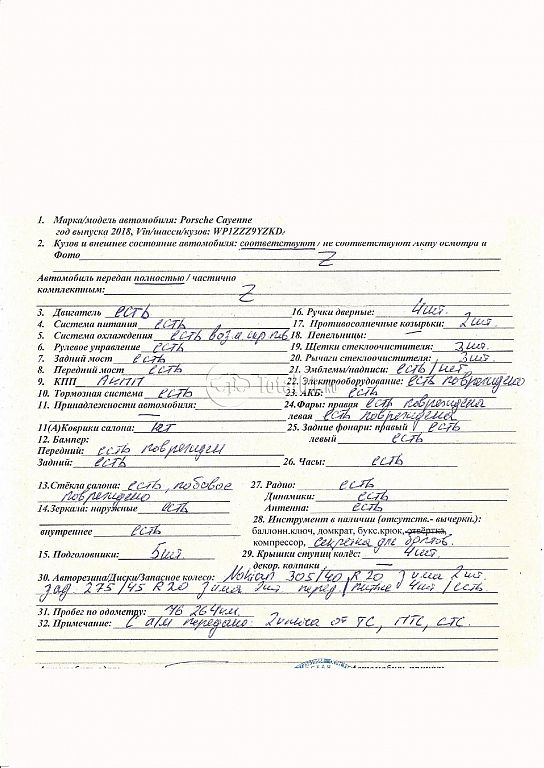 1. Марка/модель автомобиля: Porsche Cayenne
год выпуска 2018, Vin/шасси/кузов: WP1ZZZ9YZKD
2. Кузов и внешнее состояние автомобиля: соответствуют / не соответствуют Акту осмотра и
Фото Z
Автомобиль передан полностью / частично
комплектным: Z
3. Двигатель есть
16. Ручки дверные: 4 шт.
4. Система питания есть
17. Противосолнечные козырьки: 2 шт
5. Система охлаждения есть
18. Пепельницы: —
6. Рулевое управление есть
19. Щетки стеклоочистителя: 3 шт.
7. Задний мост есть
20. Рычаги стеклоочистителя: 3 шт
8. Передний мост есть
21. Эмблемы/надписи: есть / нет
9. КПП АКПП
22. Электрооборудование: есть повреждено
10. Тормозная система есть
23. АКБ: есть
11. Принадлежности автомобиля: —
24. Фары: правая есть повреждена
левая есть повреждена
11(А)Коврики салона: нет
25. Задние фонари: правый есть
12. Бампер:
левый есть
Передний: есть поврежден
Задний: есть
26. Часы: есть
13.Стёкла салона: есть, лобовое
повреждено
27. Радио: есть
Динамики: есть
14.Зеркала: наружные есть
Антенна: есть
28. Инструмент в наличии (отсутств.- вычеркн.):
внутреннее есть
баллонн.ключ, домкрат, букс.крюк, отвёртка,
компрессор, секретка для болтов.
15. Подголовники: 5 шт.
29. Крышки ступиц колёс: 4 шт.
декор. колпаки —
30. Авторезина/Диски/Запасное колесо: Nokian 305/40 R20 зима 2 шт.
зад 275/45 R20 зима 2 шт перед / литые 4 шт / есть.
31. Пробег по одометру: 76 264 км.
32. Примечание: С а/м передано: 2 ключа от ТС, ПТС, СТС.